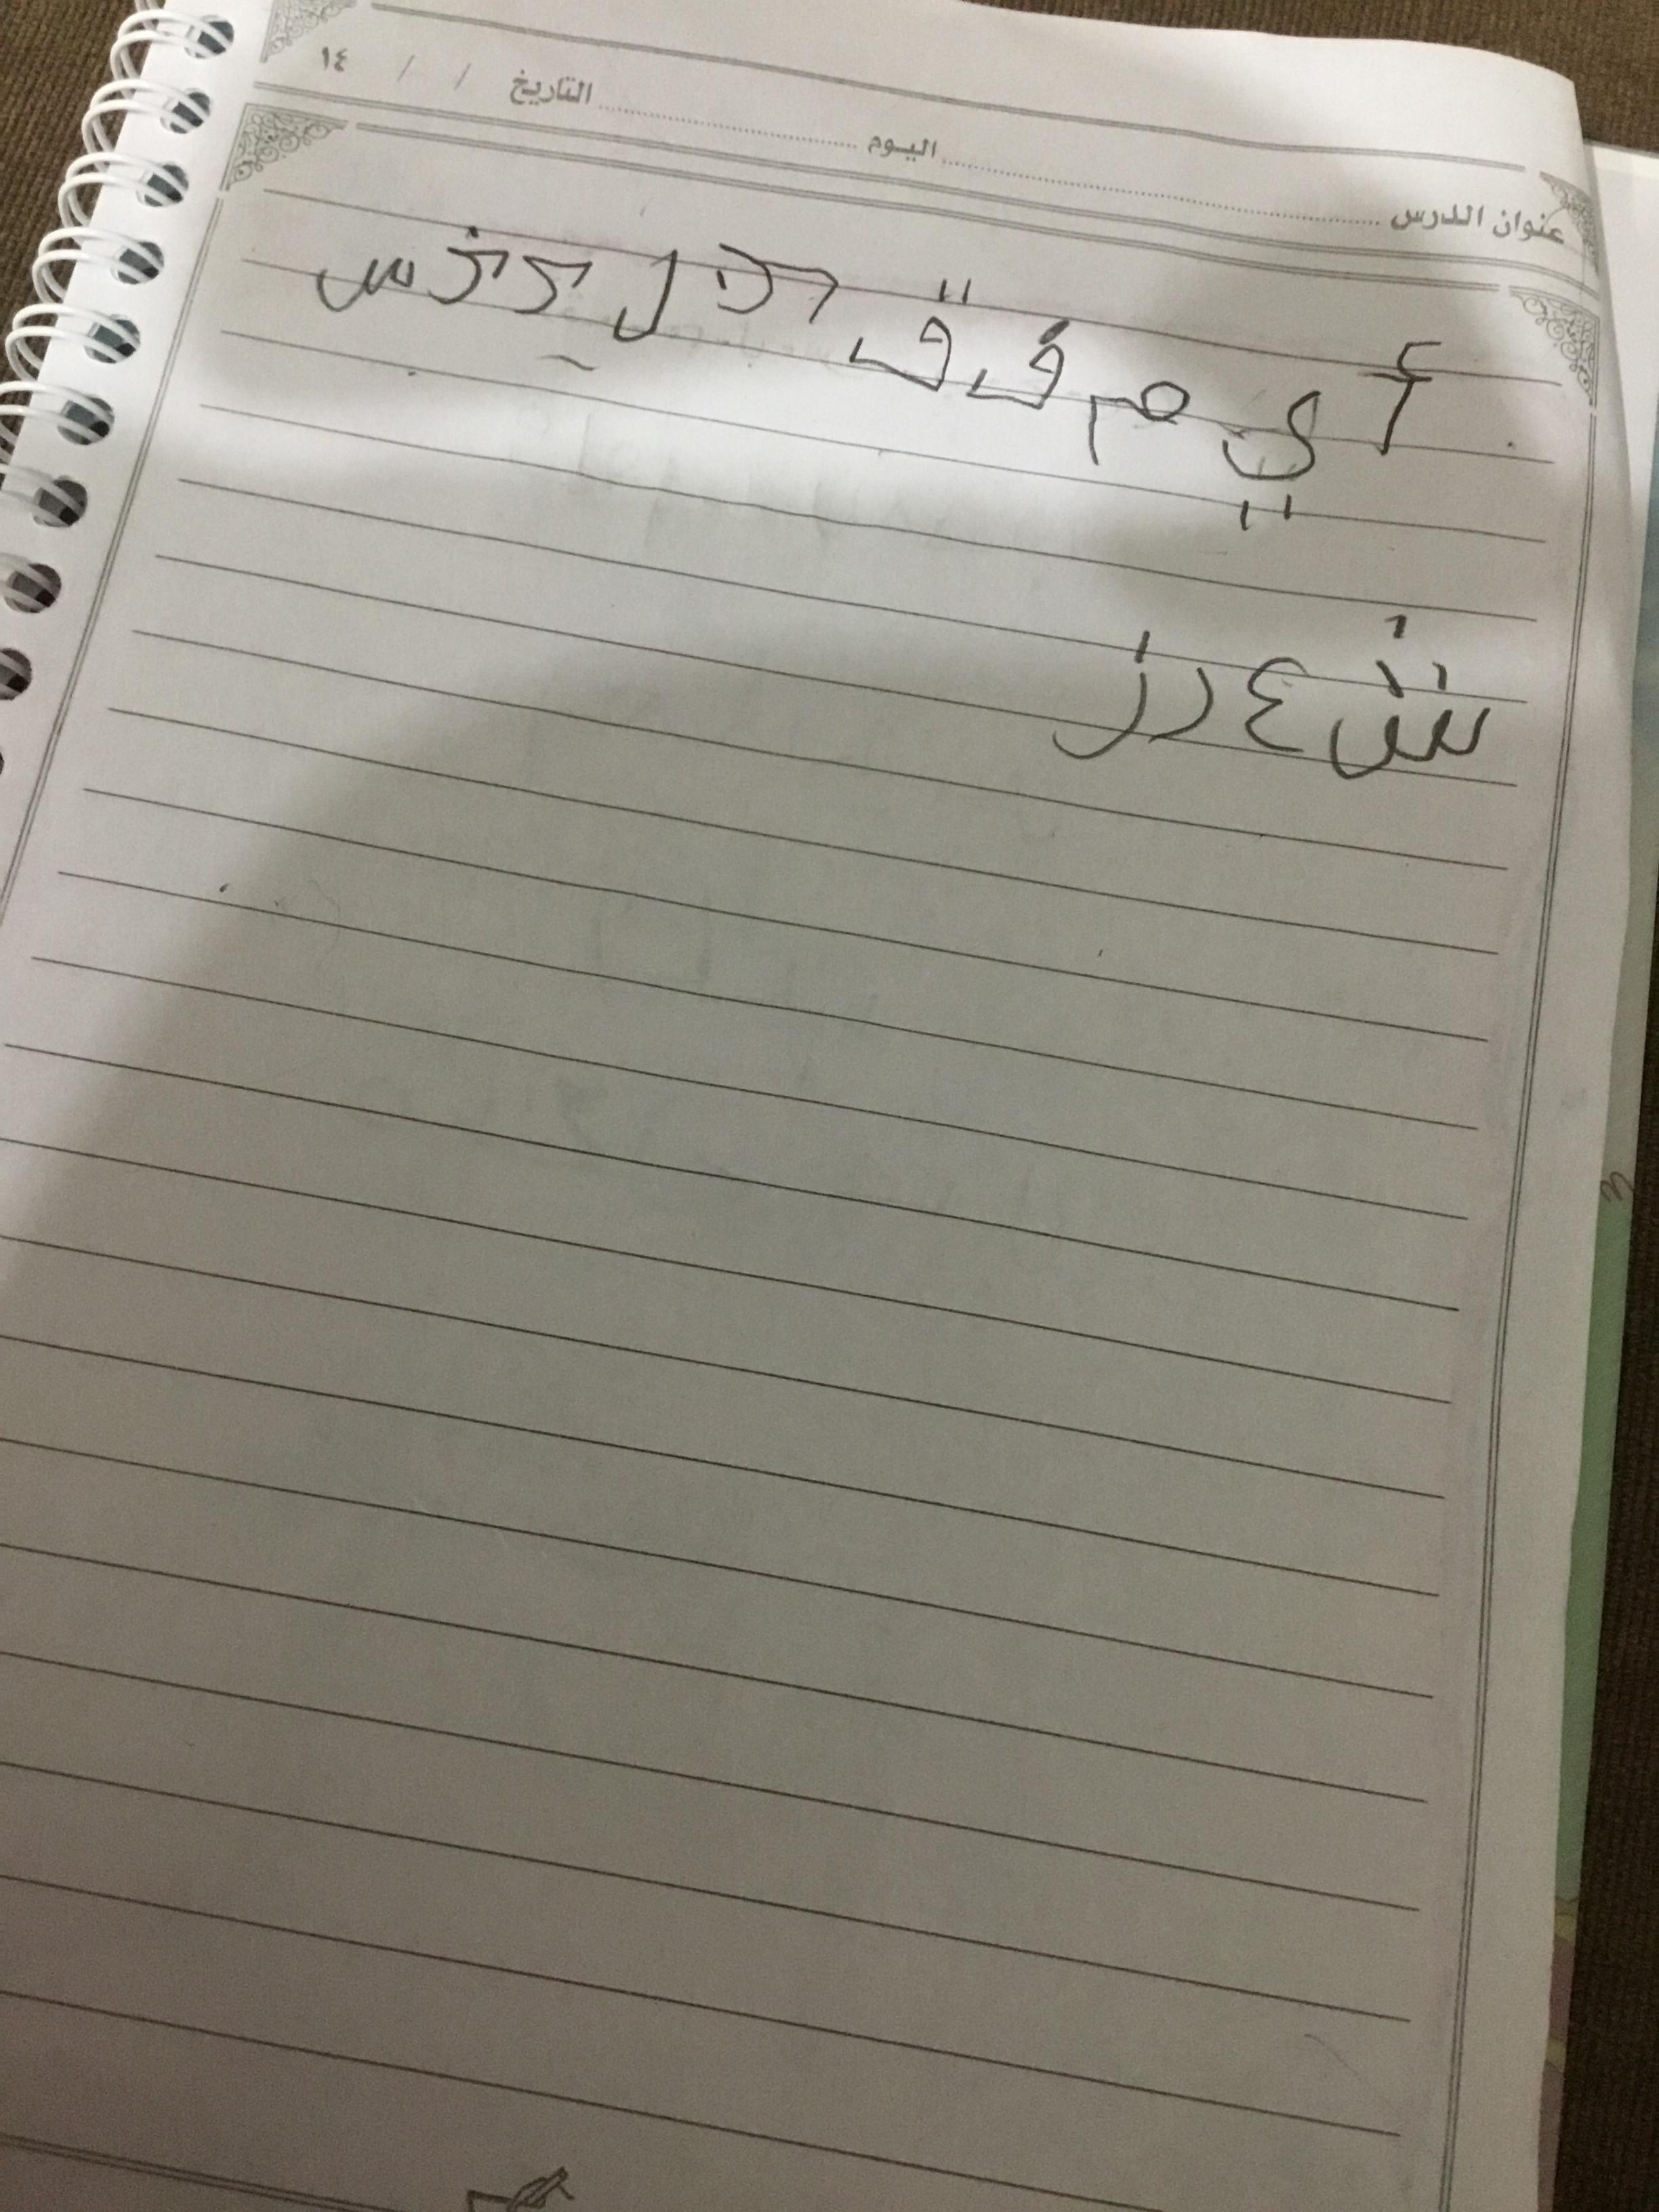 عنوان الدرس اليوم التاريخ / / ١٤
أ ي م ف ق د ذ ل ج خ س
ش ع ر ز